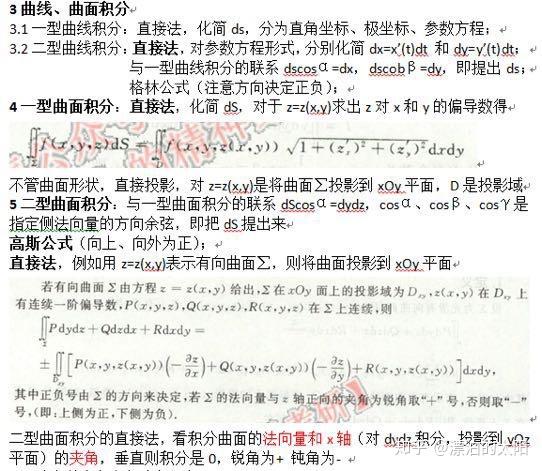 3 曲线、曲面积分
3.1 一型曲线积分：直接法，化简 ds，分为直角坐标、极坐标、参数方程；
3.2 二型曲线积分：直接法，对参数方程形式，分别化简 dx=x'(t)dt 和 dy=y'(t)dt；
与一型曲线积分的联系 dscosα=dx，dscobβ=dy，即提出 ds；
格林公式（注意方向决定正负）；
4 一型曲面积分：直接法，化简 dS，对于 z=z(x,y)求出 z 对 x 和 y 的偏导数得
∬f(x,y,z)dS = ∬f(x,y,z(x,y)) √1+(z'x)²+(z'y)² dxdy
不管曲面形状，直接投影，对 z=z(x,y)是将曲面∑投影到 xOy 平面，D 是投影域
5 二型曲面积分：与一型曲面积分的联系 dScosα=dydz，cosα、cosβ、cosγ是
指定侧法向量的方向余弦，即把 dS 提出来
高斯公式（向上、向外为正）；
直接法，例如用 z=z(x,y)表示有向曲面∑，则将曲面投影到 xOy 平面
若有向曲面 Σ 由方程 z = z(x,y) 给出，Σ 在 xOy 面上的投影域为 Dxy，z(x,y) 在 Dxy 上
有连续一阶偏导数，P(x,y,z)，Q(x,y,z)，R(x,y,z) 在 Σ 上连续，则
∬Pdydz + Qdzdx + Rdxdy =
±∬[P(x,y,z(x,y))(−∂z/∂x)+Q(x,y,z(x,y))(−∂z/∂y)+R(x,y,z(x,y))]dxdy,
其中正负号由 Σ 的方向来决定，若 Σ 的法向量与 z 轴正向的夹角为锐角取“+”号，否则取“—”
号，(即：上侧为正，下侧为负).
二型曲面积分的直接法，看积分曲面的法向量和 x 轴（对 dydz 积分，投影到 yOz
平面）的夹角，垂直则积分是 0，锐角为+ 钝角为-
知乎 @漂泊的太阳